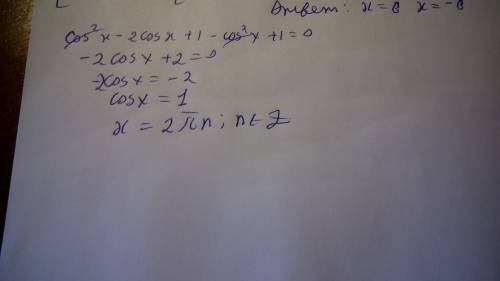 Ответ: x = 8 x = -8
cos²x - 2cosx + 1 - cos²x + 1 = 0
-2cosx + 2 = 0
-2cosx = -2
cosx = 1
x = 2πn; n∈Z